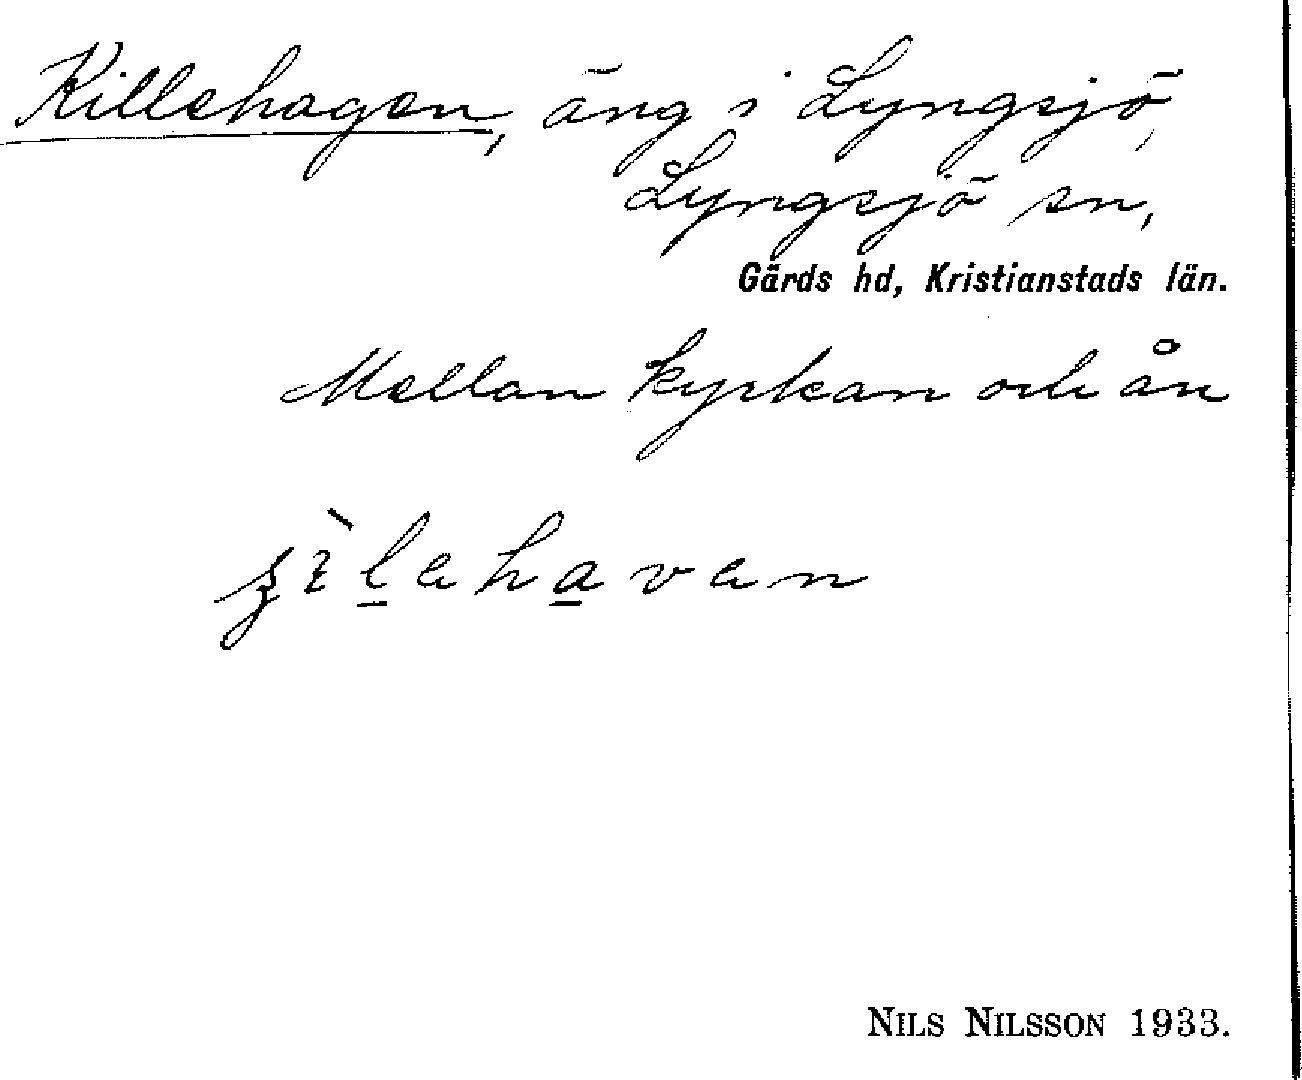 Killehagen, äng i Lyngsjö,
Lyngsjö sn,
Gärds hd, Kristianstads län.
Mellan kyrkan och ån
NILS NILSSON 1933.